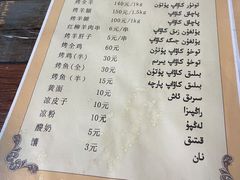 烤全羊 140元/1kg تونۇر كاۋاپ پۈتۈن
烤羊腿 150元/1kg پاچاق كاۋاپ
烤羊腿 100元/1.5kg پاچاق كاۋاپ
红柳羊肉串 6元/串 يۇلغۇن زىق كاۋاپ
烤羊肝子 5元/串 جىگەر كاۋاپ
烤全鸡 60元 توخۇ كاۋاپ پۈتۈن
烤鸡(半) 30元 توخۇ كاۋاپ يېرىم
烤鱼(半) 15元 بېلىق كاۋاپ پارچە
黄面 10元 سېرىق ئاش
凉皮子 10元 لەڭپۇڭ
凉粉 10元
酸奶 5元 قېتىق
馕 3元 نان